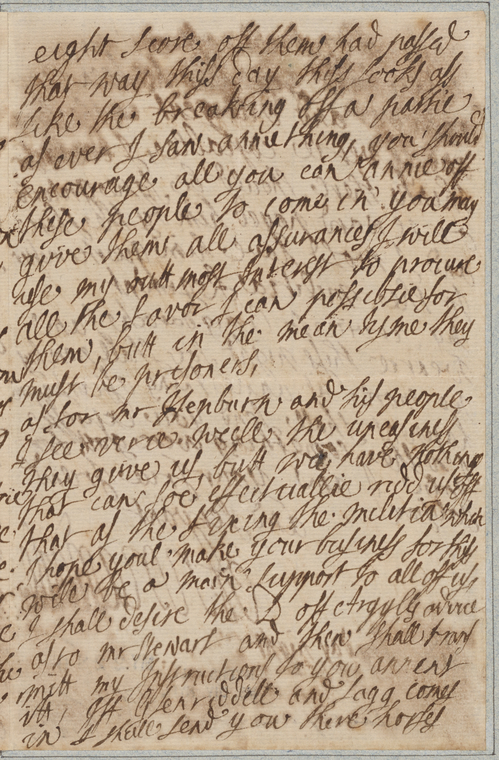 eight score off them had passed
that way this day this looks as
like the breaking off a partie
as ever I saw aniething, you should
Encourage all you can annie off
these people to come in you may
give them all assurances I will
use my outt most Interest to procure
all the favor I can possiblie for
them, butt in the mean tyme they
must be prisoners,
as for mr Hepburn and his people
I see verie weele the uneasiness
they give us, butt wee have nothing
that can be effectuallie ridd us off
that as the fixing the militia which
I hope youl make your busines for this
will be a main support to all off us
I shall desire the D off Argyls advice
as to mr Stewart and then shall trans
mitt my Instructions to you anent
itt, iff Glenriddell and Lagg comes
in I shall send you there horses